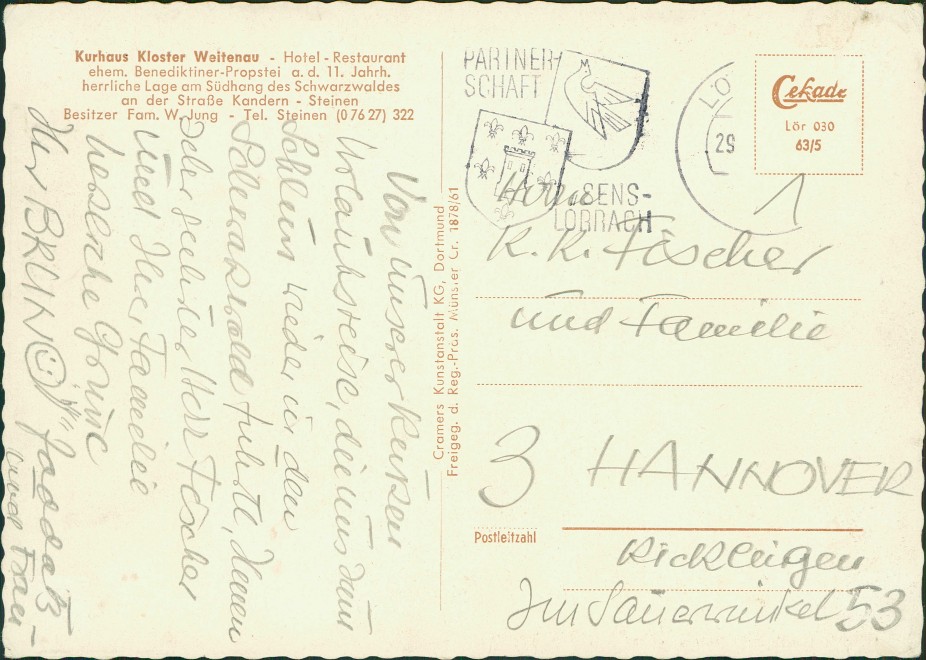 Kurhaus Kloster Weitenau - Hotel - Restaurant
ehem. Benediktiner-Propstei a. d. 11. Jahrh.
herrliche Lage am Südhang des Schwarzwaldes
an der Straße Kandern - Steinen
Besitzer Fam. W. Jung - Tel. Steinen (0 76 27) 322
Von unserer kurzen
Urlaubsreise, die uns zum
Schluss wieder in den
Schwarzwald führte, Ihnen
sehr geehrter Herr Fischer
und Ihrer Familie
herzliche Grüße
Ihr BRUIN
und Frau
Cramers Kunstanstalt KG, Dortmund
Freigeg. d. Reg.-Präs. Münster Cr. 1878/61
PARTNER-
SCHAFT
SENS-
LÖRRACH
LÖ
29
Cekade
Lör 030
63/5
1
Herrn
K. K. Fischer
und Familie
3 HANNOVER
Postleitzahl
Ricklingen
Im Sauerwinkel 53